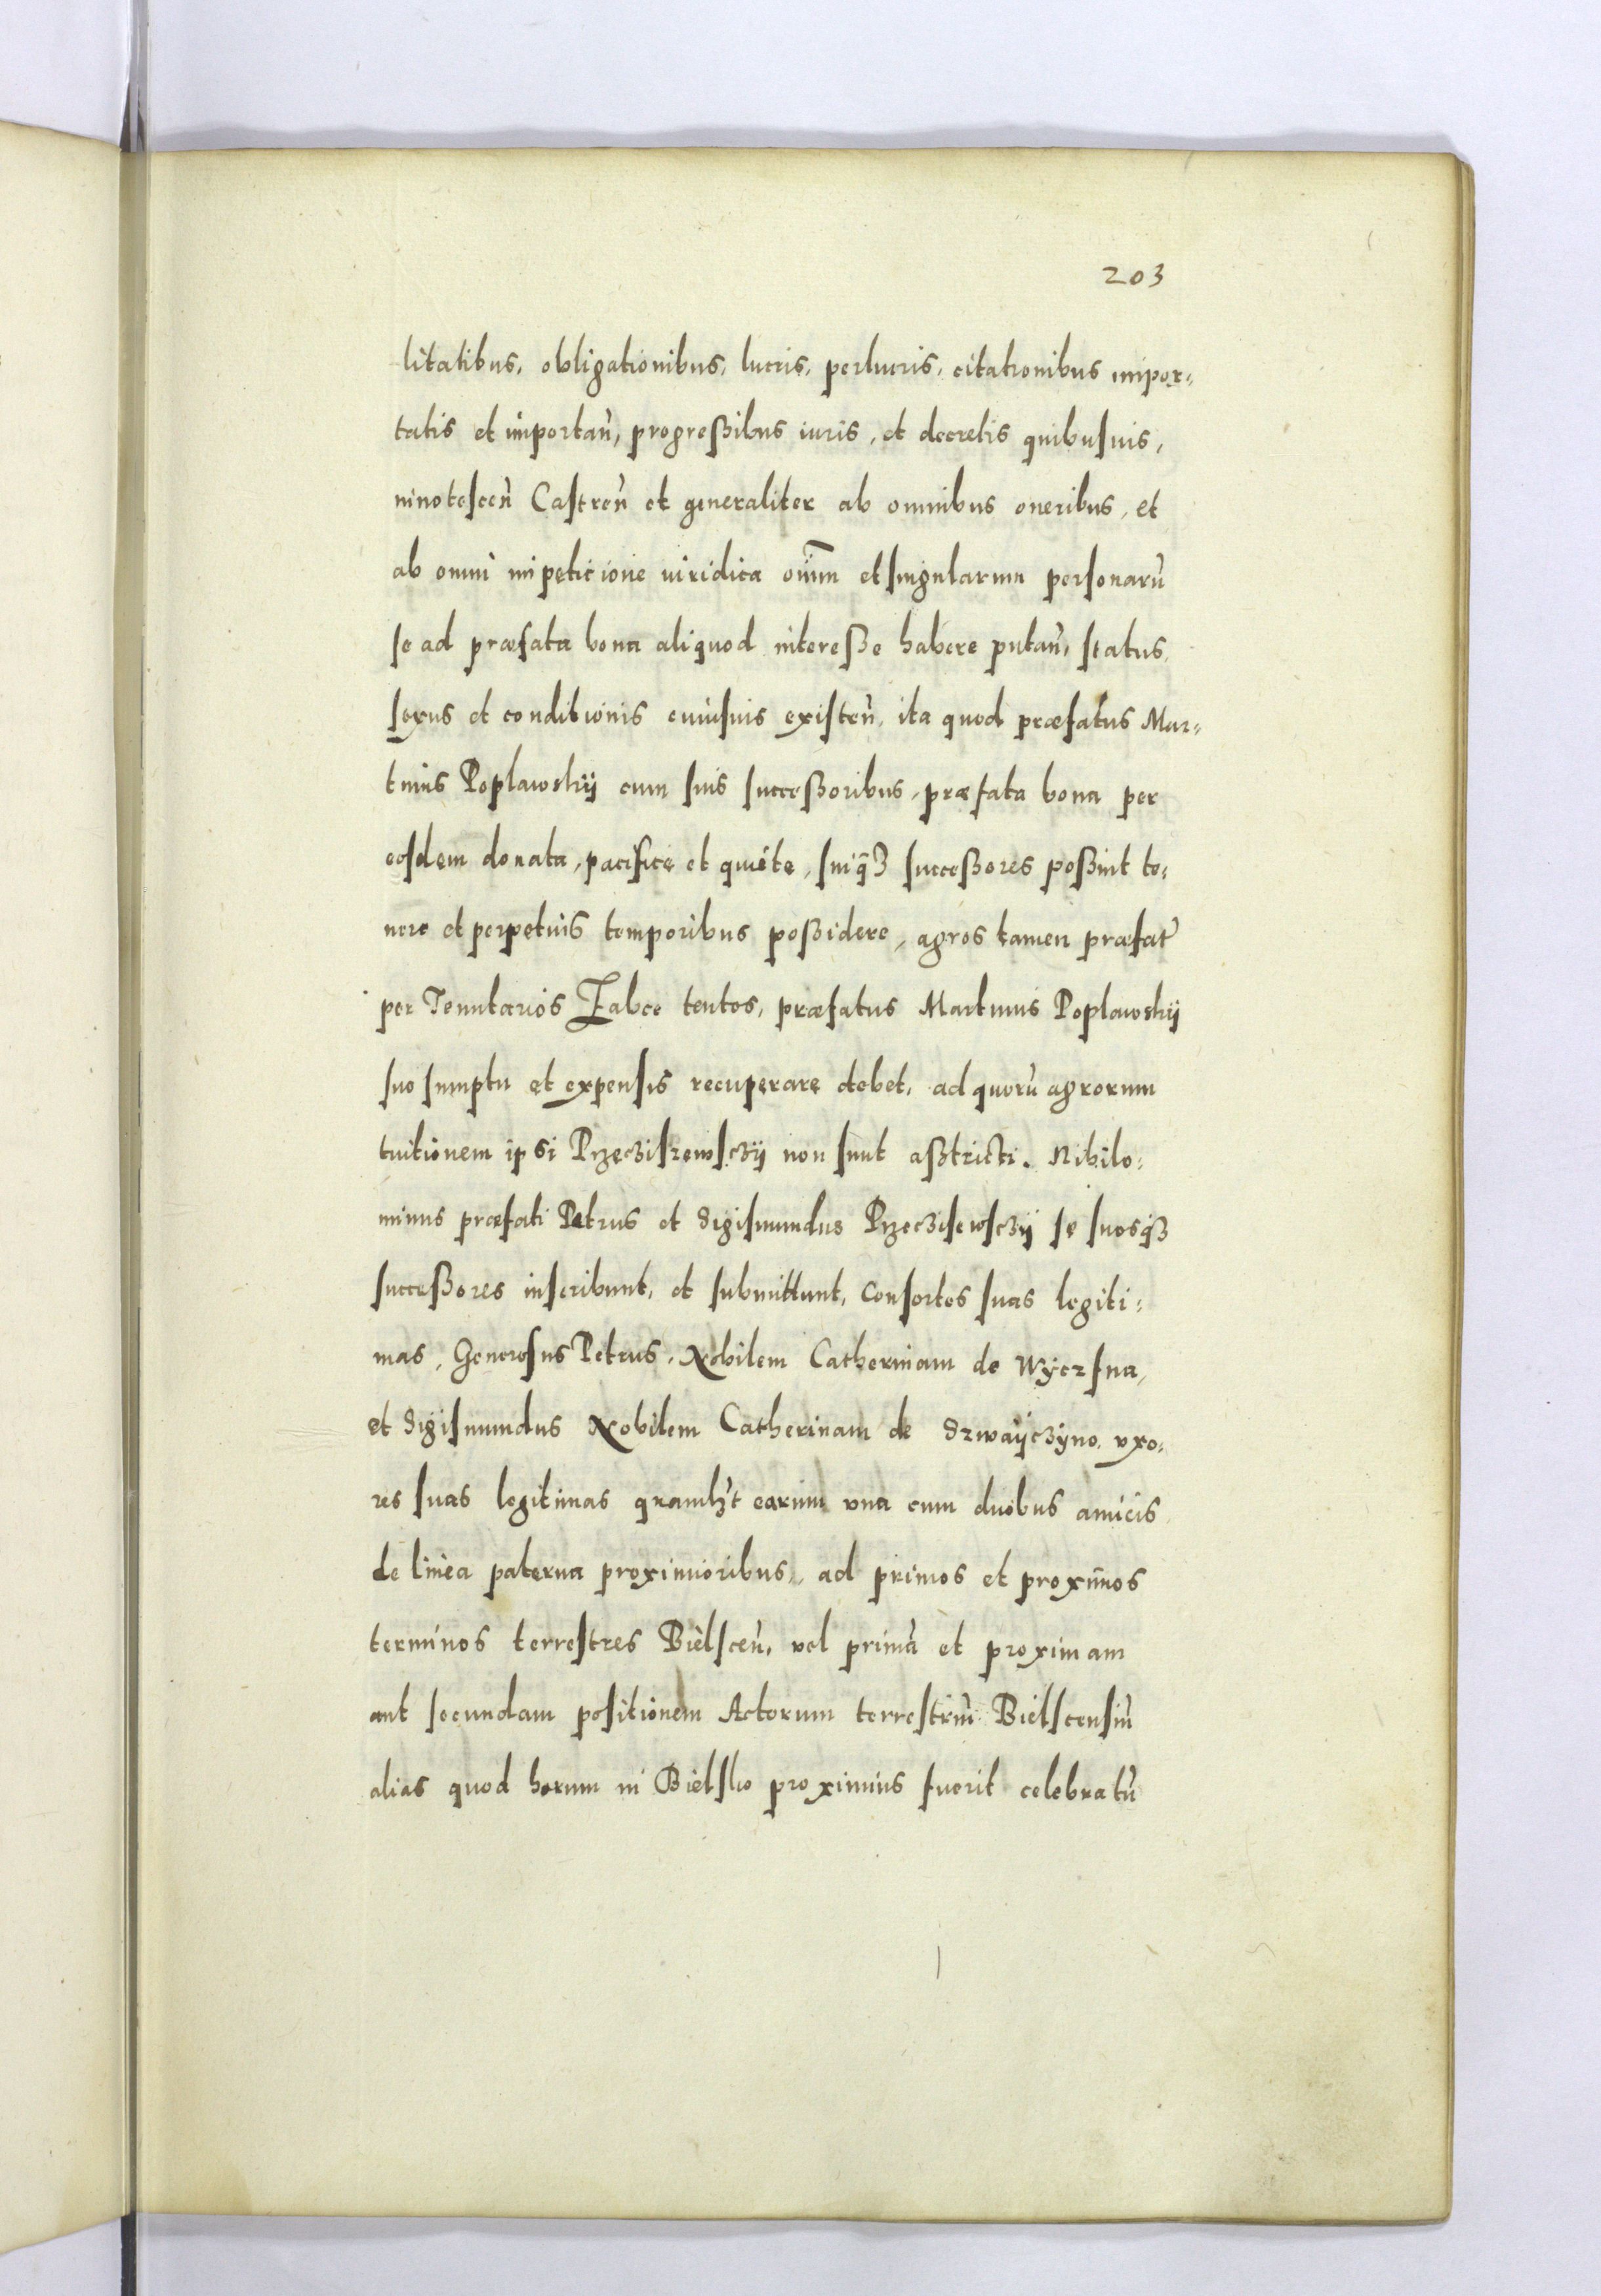 203
litatibus, obligationibus, lucris, perlucris, citationibus impor-
tatis et importan̄, progreßibus iuris, et decretis quibusuis,
innotescen̄ Castren̄ et generaliter ab omnibus oneribus, et
ab omni impeticione iuridica om̄m et singularum personarū
se ad præfata bona aliquod intereße habere putan̄, status,
sexus et conditionis cuiusuis existen̄, ita quod præfatus Mar-
tinus Poplawskÿ cum suis succeßoribus, præfata bona per
eosdem donata, pacifice et quiete, suiq̄3 succeßores poßint te-
nere et perpetuis temporibus poßidere, agros tamen præfat̄
per Tenutarios Łabce tentos, præfatus Martinus Poplawskÿ
suo sumptu et expensis recuperare debet, ad quorū agrorum
tuitionem ipsi Przecziszewsczÿ non sunt aßtricti. Nihilo-
minus præfati Petrus et Sigismundus Przeczisewsczÿ se suosq̄3
succeßores inscribunt, et submittunt, Consortes suas legiti-
mas, Generosus Petrus, Nobilem Catherinam de Wÿczsna,
et Sigismundus Nobilem Catherinam de Szwaÿczÿno, vxo-
res suas legitimas quamlibet earum vna cum duobus amicis
de linea paterna proximioribus, ad primos et proximos
terminos terrestres Bielscen̄, vel primā et proximam
aut secundam positionem Actorum terrestriū Bielscensiū
alias quod horum in Bielsko proximius fuerit celebratū